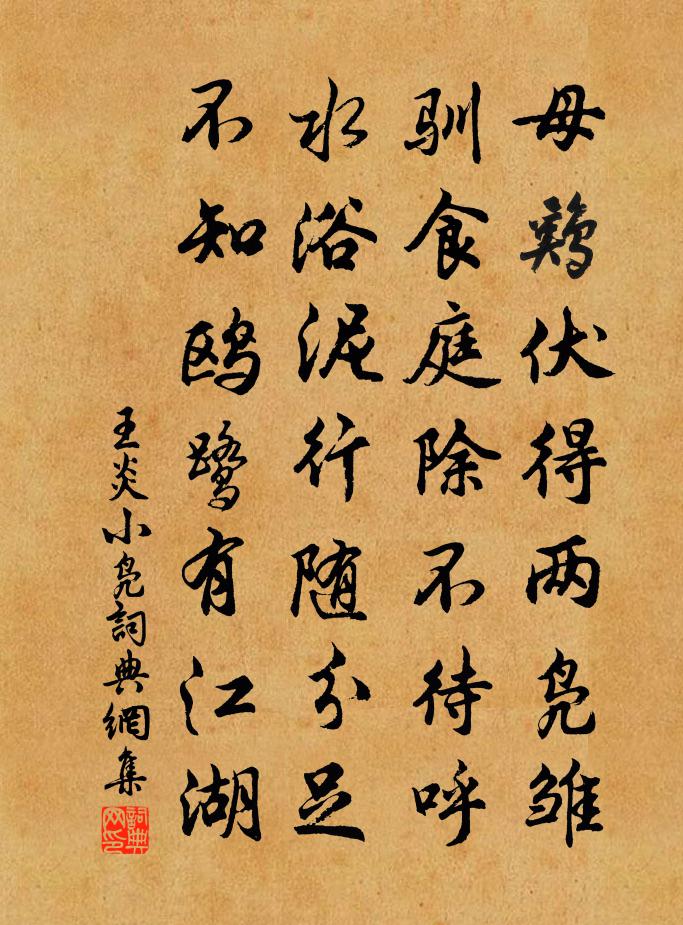 母鷄伏得两凫雏
驯食庭除不待呼
水浴泥行随分足
不知鸥鹭有江湖
王炎小凫詞典網集
詞典网印